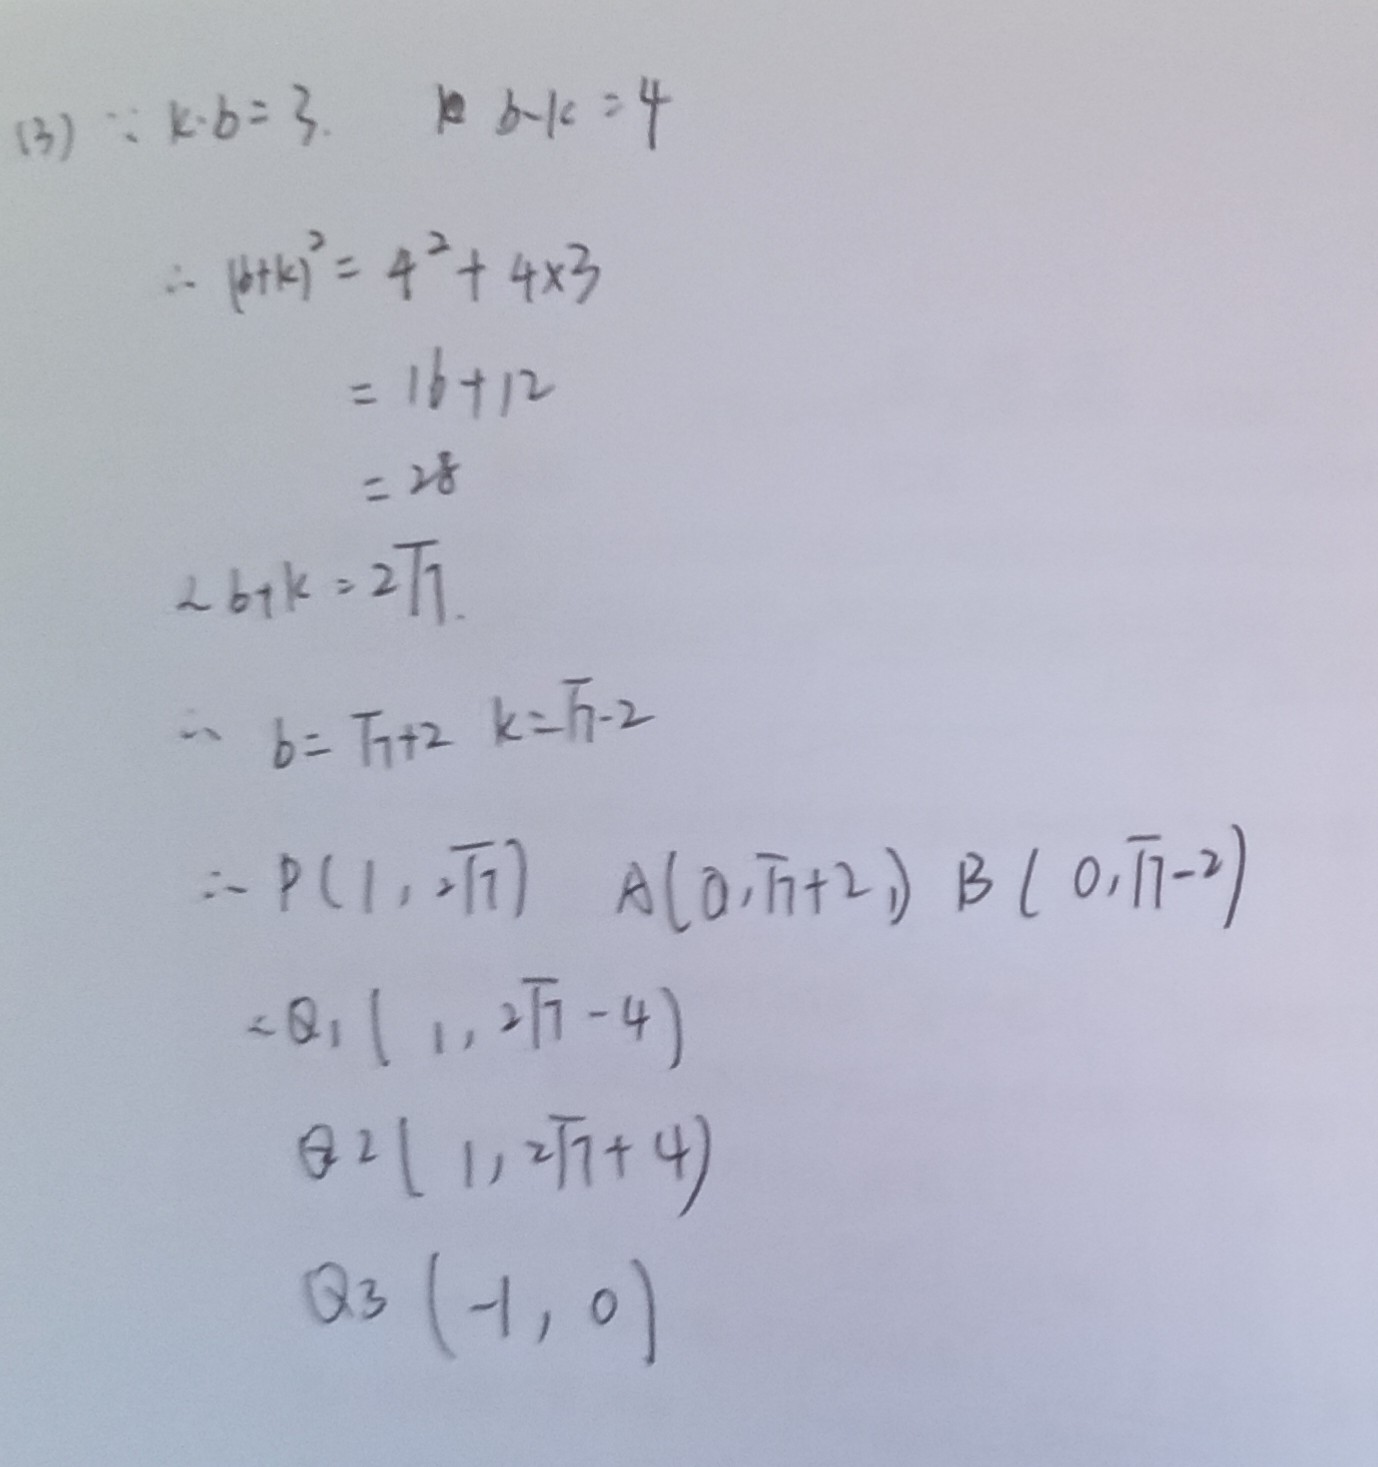 (3) ∵ k·b=3. b-k=4
∴ (b+k)²=4²+4×3
=16+12
=28
∴ b+k=2√7.
∴ b=√7+2 k=√7-2
∴ P(1,2√7) A(0,√7+2) B(0,√7-2)
∴ Q1(1,2√7-4)
Q2(1,2√7+4)
Q3(-1,0)